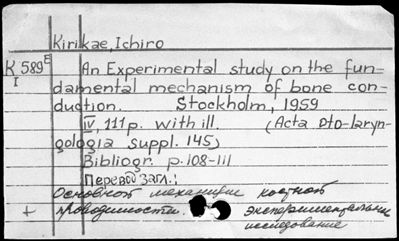 Kirikae, Ichiro
K 589E
I
An Experimental study on the fun-
damental mechanism of bone con-
duction. Stockholm, 1959
IV, 111 p. with ill. (Acta Oto-laryn-
gologia suppl. 145)
Bibliogr. p. 108-111
Перевод загл.:
Основной механизм костной
+ проводимости. экспериментальное
исследование